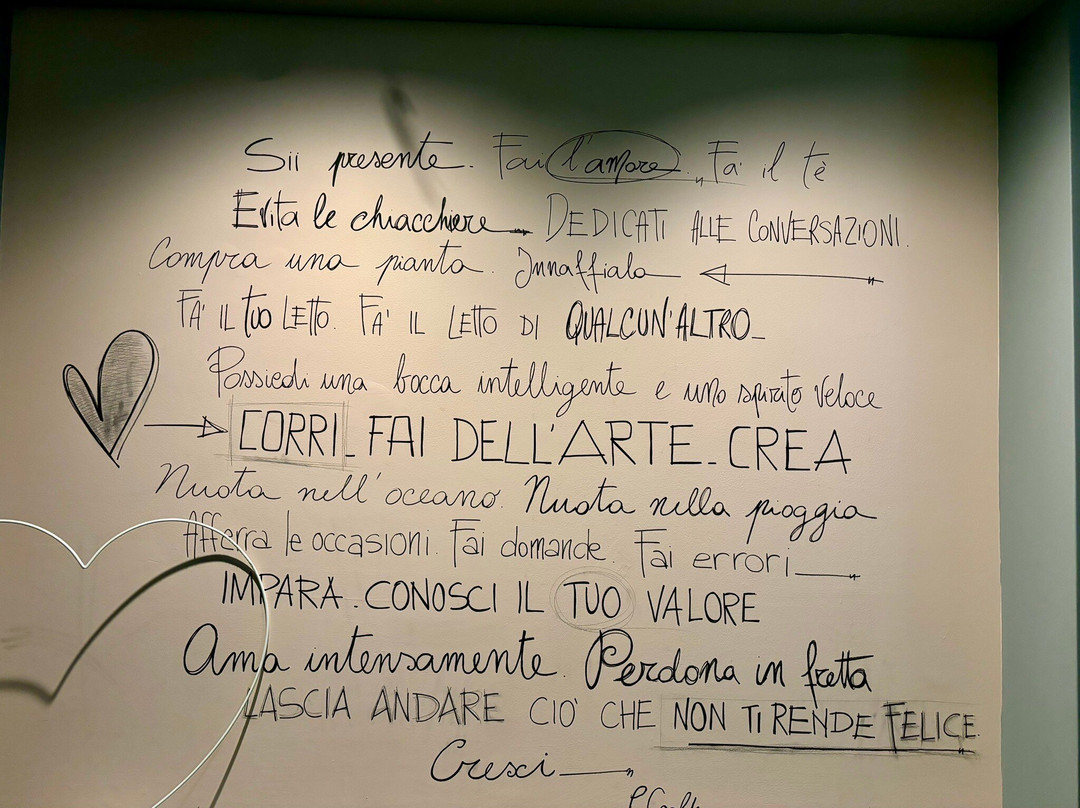 Sii presente. Fai l'amore. Fai il tè
Evita le chiacchiere_ DEDICATI ALLE CONVERSAZIONI.
Compra una pianta. Innaffiala
FA' IL TUO LETTO. FA' IL LETTO DI QUALCUN'ALTRO_
Possiedi una bocca intelligente e uno spirito veloce
CORRI_ FAI DELL'ARTE_ CREA
Nuota nell'oceano. Nuota nella pioggia
Afferra le occasioni. Fai domande. Fai errori
IMPARA. CONOSCI IL TUO VALORE
Ama intensamente. Perdona in fretta
LASCIA ANDARE CIÒ CHE NON TI RENDE FELICE.
Cresci